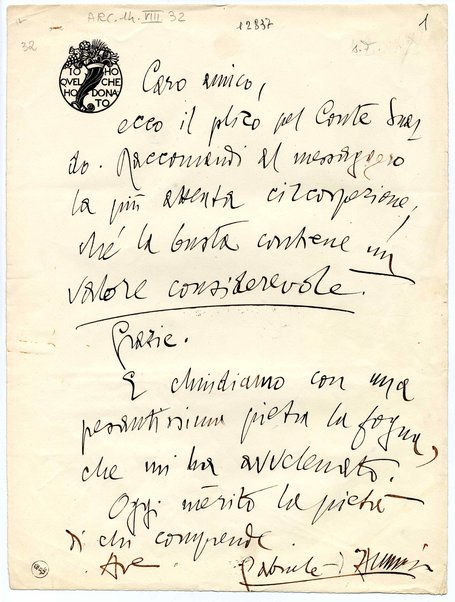 ARC. 14. VIII 32
12837
1
32
s.d.
IO HO
QVEL CHE
HO DONA
TO
Caro amico,
ecco il plico pel Conte Suar
do. Raccomandi al messaggero
la più attenta circospezione,
ché la busta contiene un
valore considerevole.
Grazie.
E chiudiamo con una
pesantissima pietra la fogna,
che mi ha avvelenato.
Oggi mèrito la pietà
di chi comprende.
Ave
Gabriele d'Annunzio